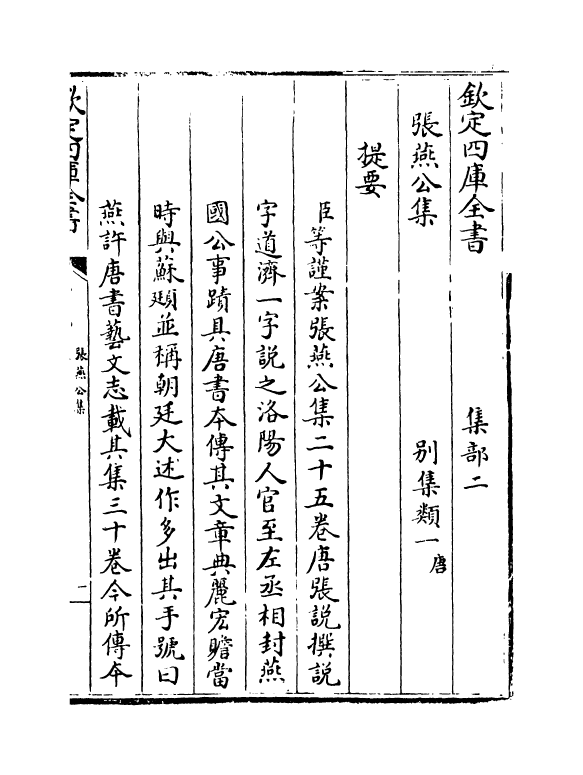 欽定四庫全書　集部二
張燕公集　別集類一唐
提要
臣等謹案張燕公集二十五卷唐張說撰說
字道濟一字說之洛陽人官至左丞相封燕
國公事蹟具唐書本傳其文章典麗宏贍當
時與蘇頲並稱朝廷大述作多出其手號曰
燕許唐書藝文志載其集三十卷今所傳本
欽定四庫全書
張燕公集